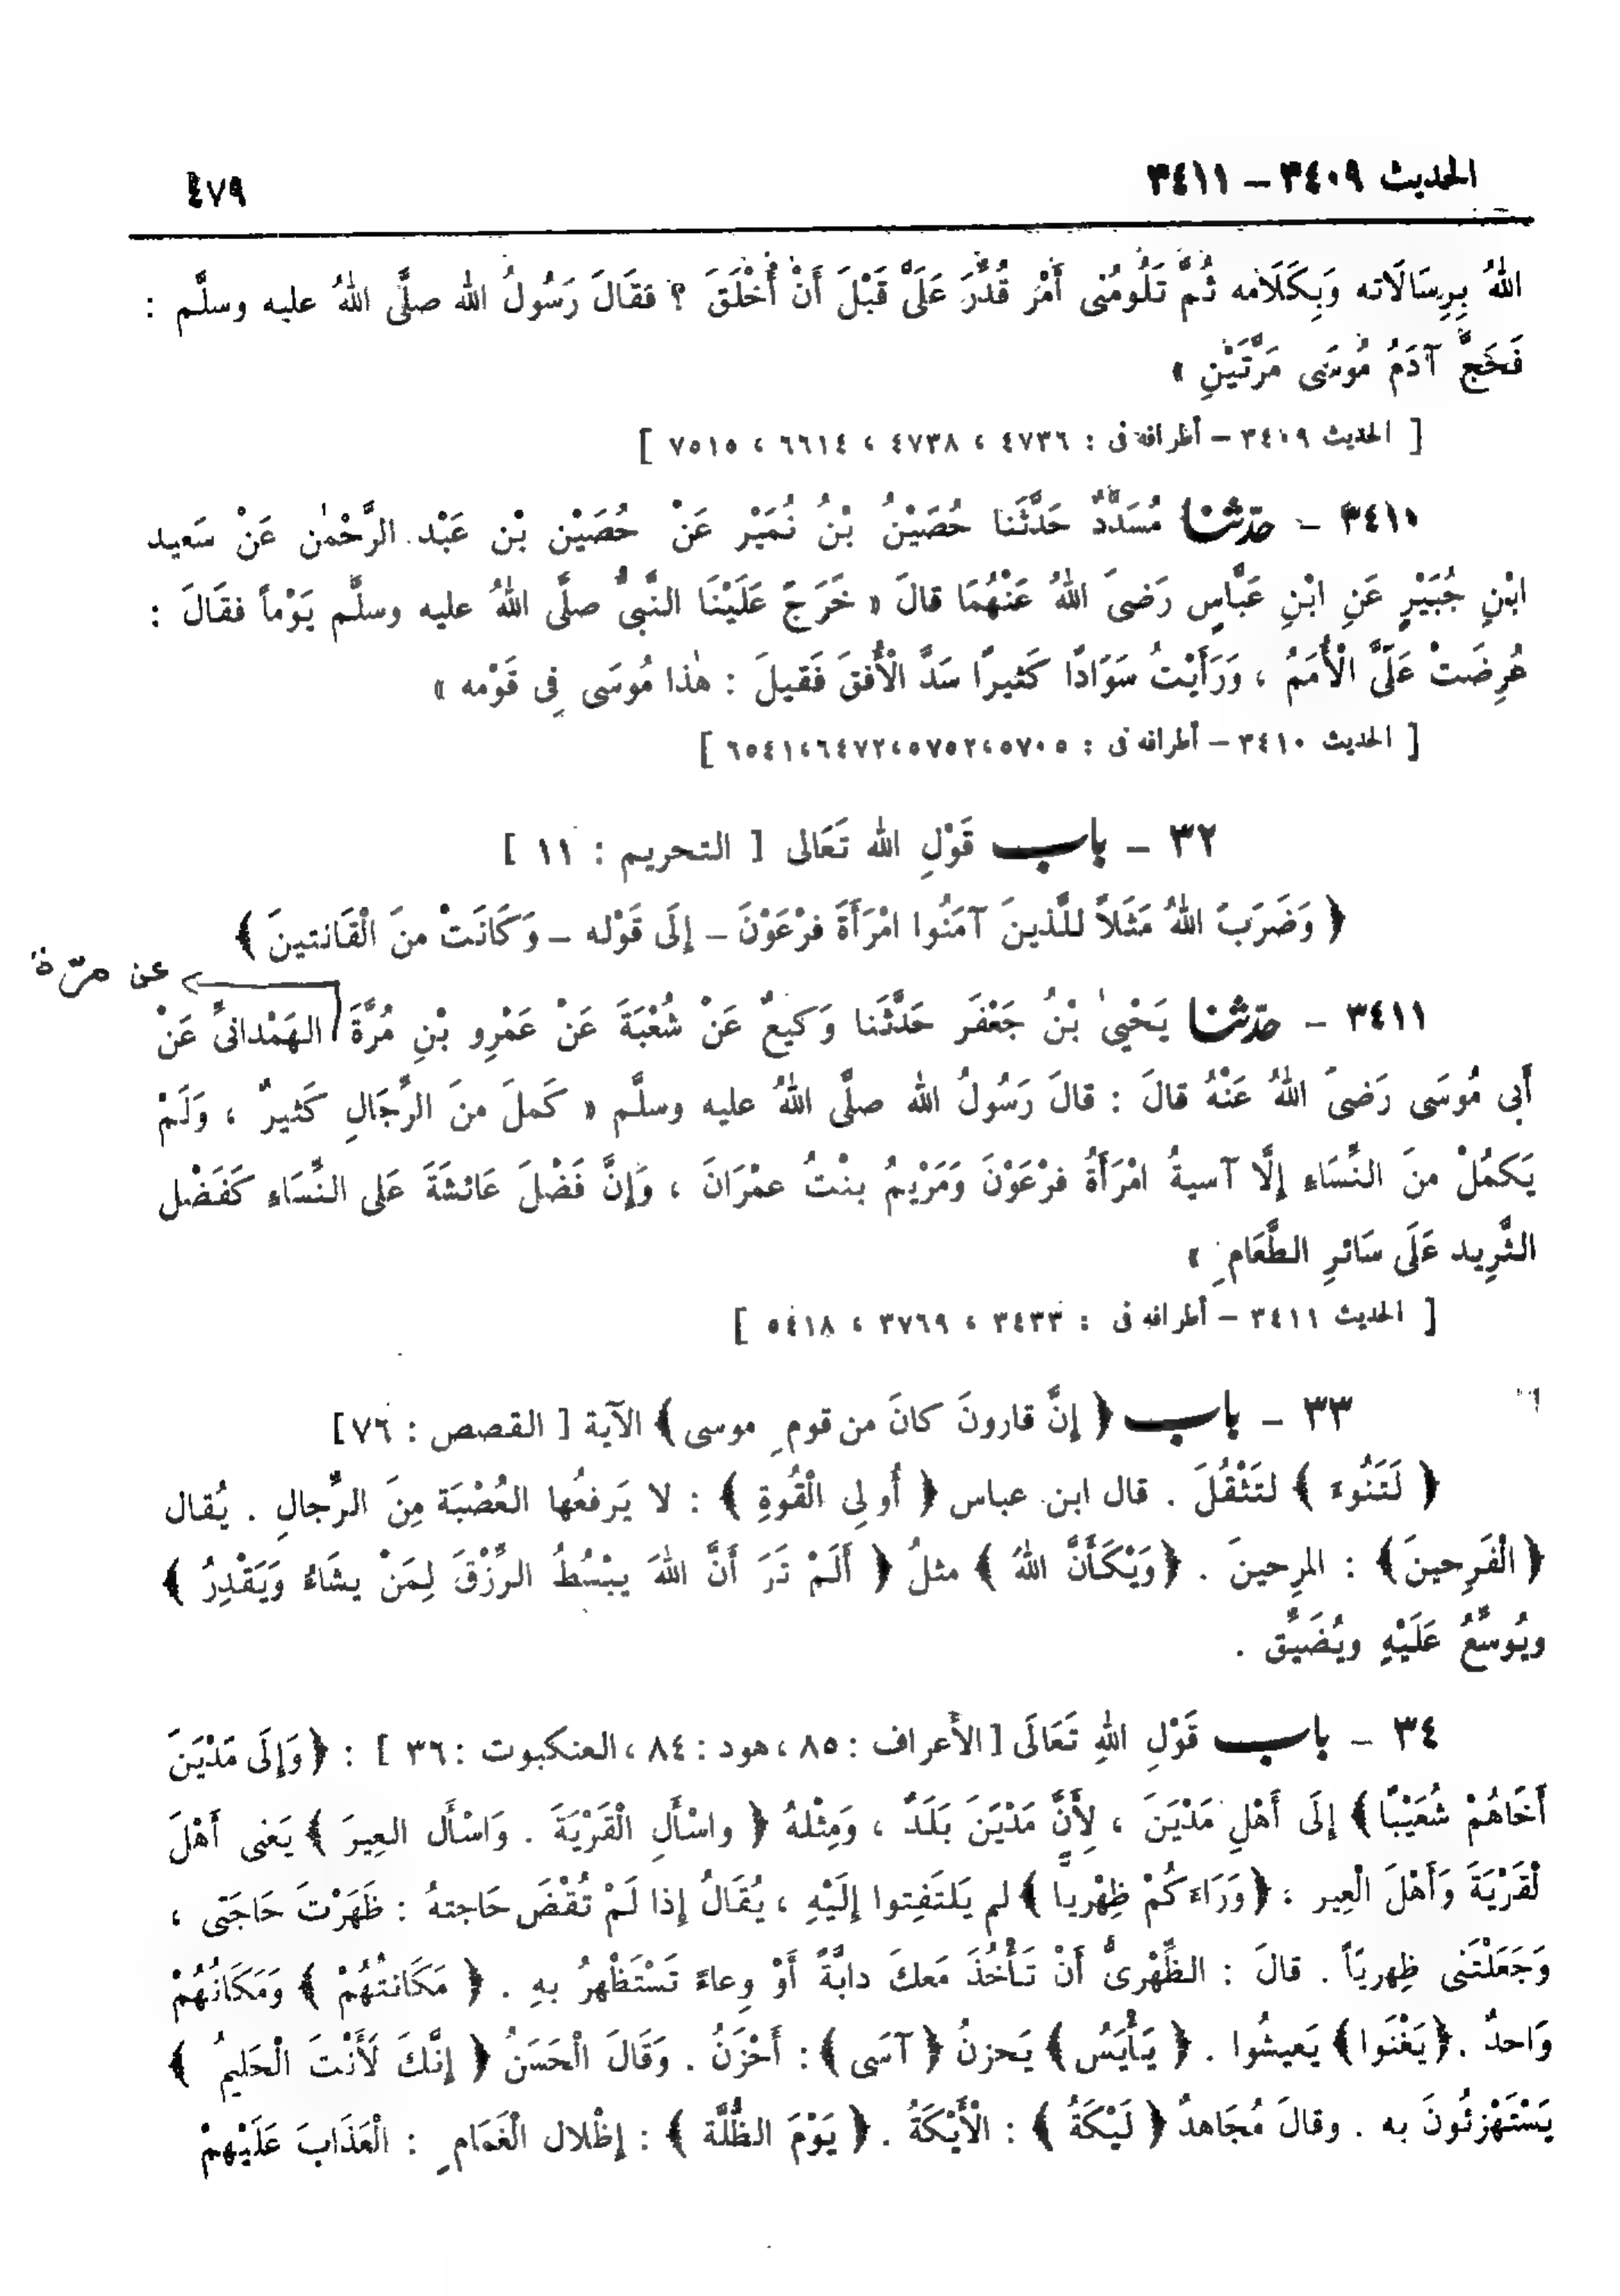 الحديث ٣٤٠٩ – ٣٤١١
٤٧٩
اللهُ بِرِسَالَاته وَبِكَلَامه ثُمَّ تَلُومُنى أَمْرٍ قُدِّرَ عَلَىَّ قَبْلَ أَنْ أُخْلَقَ ؟ فقَالَ رَسُولُ الله صلَّى اللهُ عليه وسلَّم :
فَحَجَّ آدَمُ مُوسَى مَرَّتَيْنِ »
[ الحديث ٣٤٠٩ – أطرافه فى : ٤٧٣٦ ، ٤٧٣٨ ، ٦٦١٤ ، ٧٥١٥ ]
٣٤١٠ – حدّثنا مُسَدَّدٌ حَدَّثَنا حُصَيْنُ بْنُ نُمَيْر عَنْ حُصَيْن بْن عَبْد الرَّحْمٰن عَنْ سَعيد
ابْنِ جُبَيْرٍ عَنِ ابْنِ عَبَّاسٍ رَضىَ اللهُ عَنْهُمَا قالَ « خَرَجَ عَلَيْنَا النَّبىُّ صلَّى اللهُ عليه وسلَّم يَوْماً فقَالَ :
عُرِضَتْ عَلَىَّ الْأُمَمُ ، وَرَأَيْتُ سَوَادًا كَثيرًا سَدَّ الْأُفقَ فَقيلَ : هٰذا مُوسَى فِى قَوْمه »
[ الحديث ٣٤١٠ – أطرافه فى : ٥٧٠٥،٥٧٥٢،٦٤٧٢،٦٥٤١ ]
٣٢ – باب قَوْلِ الله تَعَالى [ التحريم : ١١ ]
﴿ وَضَرَبَ اللهُ مَثَلاً للَّذينَ آمَنُوا امْرَأَةَ فرْعَوْنَ – إلَى قَوْله – وَكَانَتْ منَ الْقَانتينَ ﴾
عن مرّة
٣٤١١ – حدّثنا يَحْيىٰ بْنُ جَعْفَر حَدَّثَنا وَكيعٌ عَنْ شُعْبَةَ عَنْ عَمْرِو بْنِ مُرَّةَ الهَمْدانىِّ عَنْ
أَبى مُوسَى رَضىَ اللهُ عَنْهُ قالَ : قالَ رَسُولُ الله صلَّى اللهُ عليه وسلَّم « كَملَ منَ الرِّجَالِ كَثيرٌ ، وَلَمْ
يَكمُلْ منَ النِّسَاء إلَّا آسيةُ امْرَأَةُ فرْعَوْنَ وَمَرْيمُ بنْتُ عمْرَانَ ، وَإنَّ فَضْلَ عَائشَةَ عَلى النِّسَاءِ كَفَضْل
الثَّرِيد عَلَى سَائرِ الطَّعَامِ »
[ الحديث ٣٤١١ – أطرافه فى : ٣٤٣٣ ، ٣٧٦٩ ، ٥٤١٨ ]
٣٣ – باب ﴿ إنَّ قارونَ كانَ من قومِ موسى ﴾ الآية [ القصص : ٧٦ ]
﴿ لَتَنُوءُ ﴾ لتَثْقُلَ . قال ابن عباس ﴿ أُولِى الْقُوةِ ﴾ : لا يَرفعُها العُصْبَة مِنَ الرِّجالِ . يُقال
﴿ الْفَرِحينَ ﴾ : المرِحينَ . ﴿ وَيْكَأَنَّ اللهَ ﴾ مثلُ ﴿ أَلَمْ تَرَ أَنَّ اللهَ يبْسُطُ الرِّزْقَ لِمَنْ يشَاءُ وَيَقْدِرُ ﴾
ويُوسِّعُ عَلَيْهِ ويُضَيِّق .
٣٤ – باب قَوْلِ اللهِ تَعَالَى [ الأعراف : ٨٥ ، هود : ٨٤ ، العنكبوت : ٣٦ ] : ﴿ وَإلَى مَدْيَنَ
أَخَاهُمْ شُعَيْبًا ﴾ إلَى أَهْلِ مَدْيَنَ ، لِأَنَّ مَدْيَنَ بَلَدٌ ، وَمِثْلهُ ﴿ واسْأَلِ الْقَرْيَةَ . وَاسْأَل العِيرَ ﴾ يَعنى أَهْلَ
لْقَرْيَةَ وَأَهْلَ الْعِير : ﴿ وَرَاءَكُمْ ظِهْرِياًّ ﴾ لم يَلتَفِتوا إلَيْهِ ، يُقَالُ إذا لَمْ تُقْضَ حَاجتهُ : ظَهَرْتَ حَاجَتى ،
وَجَعَلْتَنى ظِهرِيّاً . قالَ : الظِّهْرىُّ أَنْ تَأْخُذَ مَعكَ دابَّةً أَوْ وِعاءً تَسْتَظْهرُ بهِ . ﴿ مَكَانتُهُمْ ﴾ وَمَكَانُهُمْ
وَاحدٌ . ﴿ يَغْنَوا ﴾ يَعيشُوا . ﴿ يَأْيَسُ ﴾ يَحزنُ ﴿ آسَى ﴾ : أَحْزَنُ . وَقَالَ الْحَسَنُ ﴿ إنَّكَ لَأَنْتَ الْحَليمُ ﴾
يَسْتَهْزئُونَ به . وقالَ مُجَاهدٌ ﴿ لَيْكَةُ ﴾ : الْأَيْكَةُ . ﴿ يَوْمَ الظُّلَّة ﴾ : إظْلال الْغَمَامِ : الْعَذَابَ عَلَيْهمْ